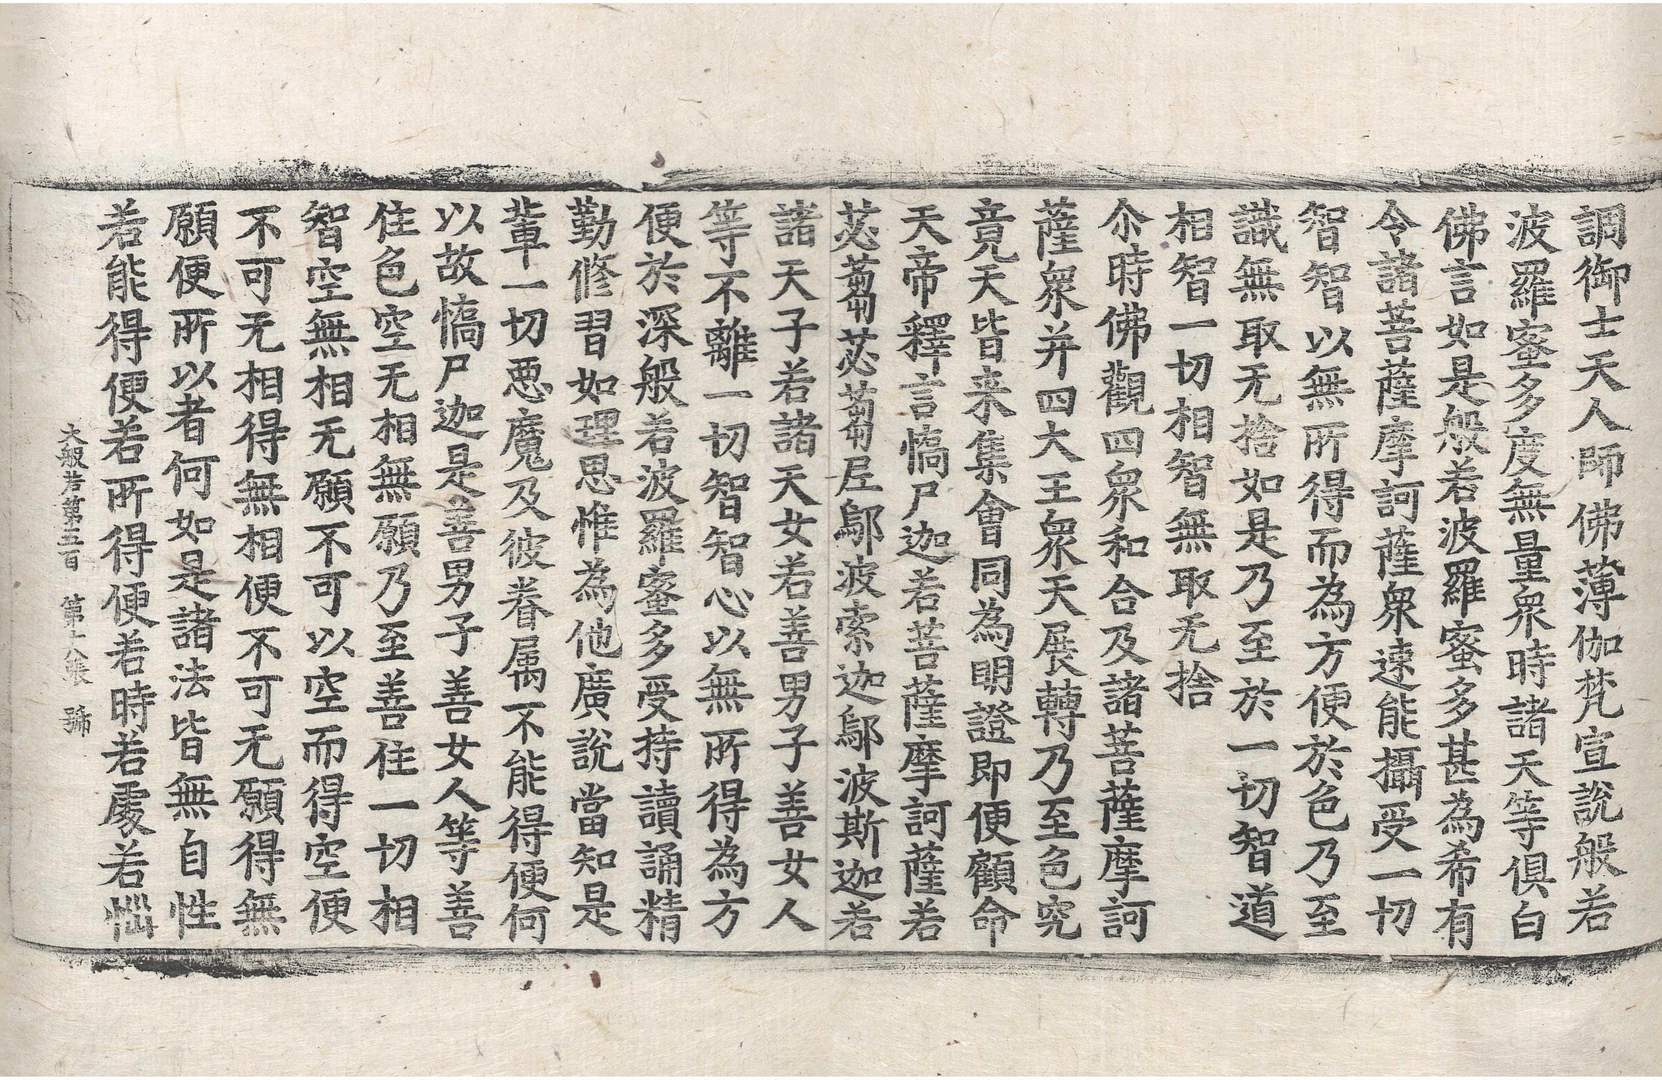 調御士天人師佛薄伽梵宣說般若
波羅蜜多度無量衆時諸天等俱白
佛言如是般若波羅蜜多甚為希有
令諸菩薩摩訶薩衆速能攝受一切
智智以無所得而為方便於色乃至
識無取无捨如是乃至於一切智道
相智一切相智無取无捨
尒時佛觀四衆和合及諸菩薩摩訶
薩衆并四大王衆天展轉乃至色究
竟天皆来集會同為明證即便顧命
天帝釋言憍尸迦若菩薩摩訶薩若
苾蒭苾蒭尼鄔波索迦鄔波斯迦若
諸天子若諸天女若善男子善女人
等不離一切智智心以無所得為方
便於深般若波羅蜜多受持讀誦精
勤修習如理思惟為他廣說當知是
輩一切惡魔及彼眷属不能得便何
以故憍尸迦是善男子善女人等善
住色空无相無願乃至善住一切相
智空無相无願不可以空而得空便
不可无相得無相便不可无願得無
願便所以者何如是諸法皆無自性
若能得便若所得便若時若處若惱
大般若第五百 第十八張 號